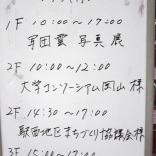 1F 10:00〜17:00
写団雲 写真展
2F 10:00〜12:00
大学コンソーシアム岡山 様
2F 14:30〜17:00
駅西地区まちづくり協議会様
3F 15:00〜17:00